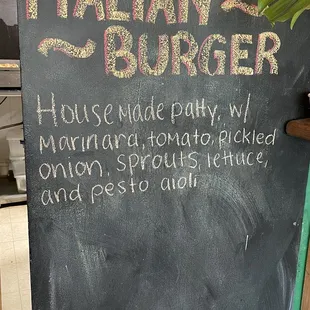 ITALIAN
~ BURGER ~
House made patty, w/
Marinara, tomato, pickled
onion, sprouts, lettuce,
and pesto aioli